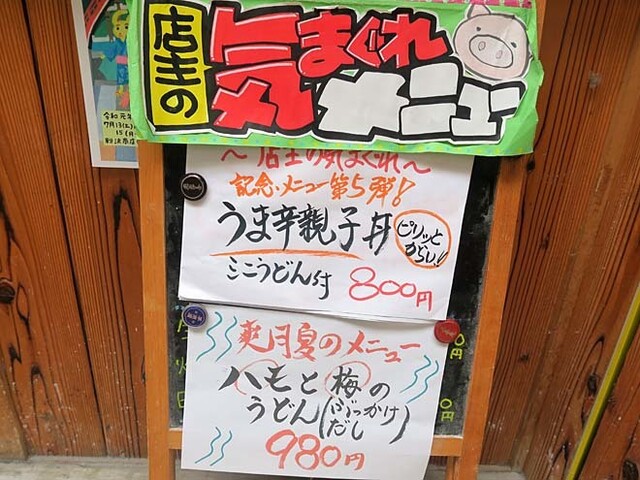 店主の
気まぐれ
メニュー
令和元年
7月13(土)
15(月
〜店主の気まぐれ〜
記念メニュー第5弾!
うま辛親子丼
ピリッと
からい!!
ミニうどん付 800円
爽月夏のメニュー
ハモと梅の
うどん(ぶっかけだし)
980円
円
円